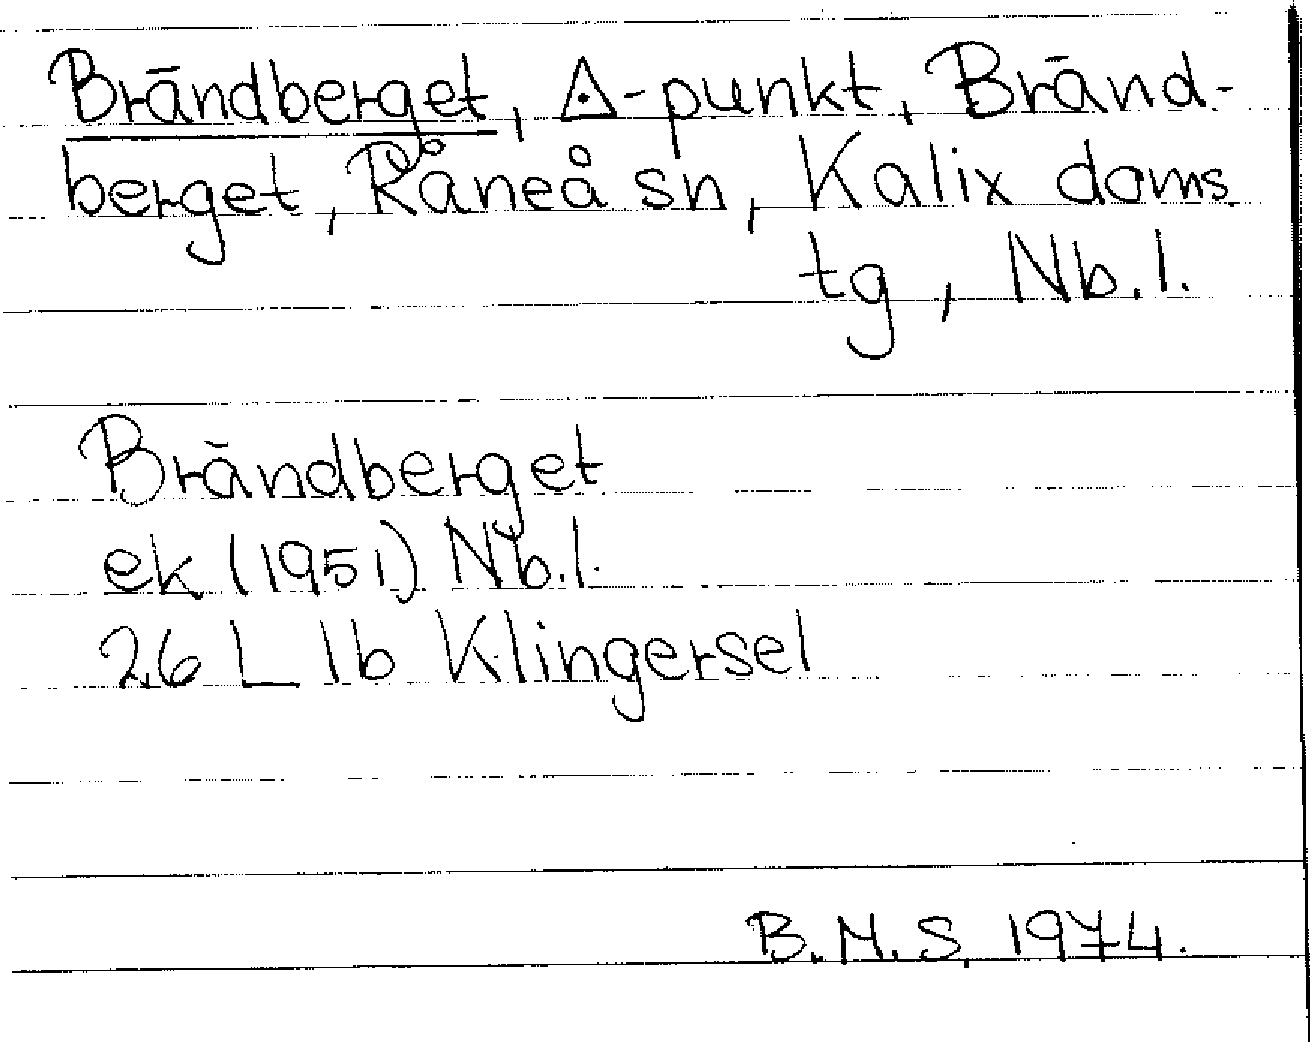 Brändberget, ◬-punkt, Bränd-
berget, Råneå sn, Kalix doms
tg, Nb.l.
Brändberget
ek (1951) Nb.l.
26 L 1b Klingersel
B.M.S. 1974.